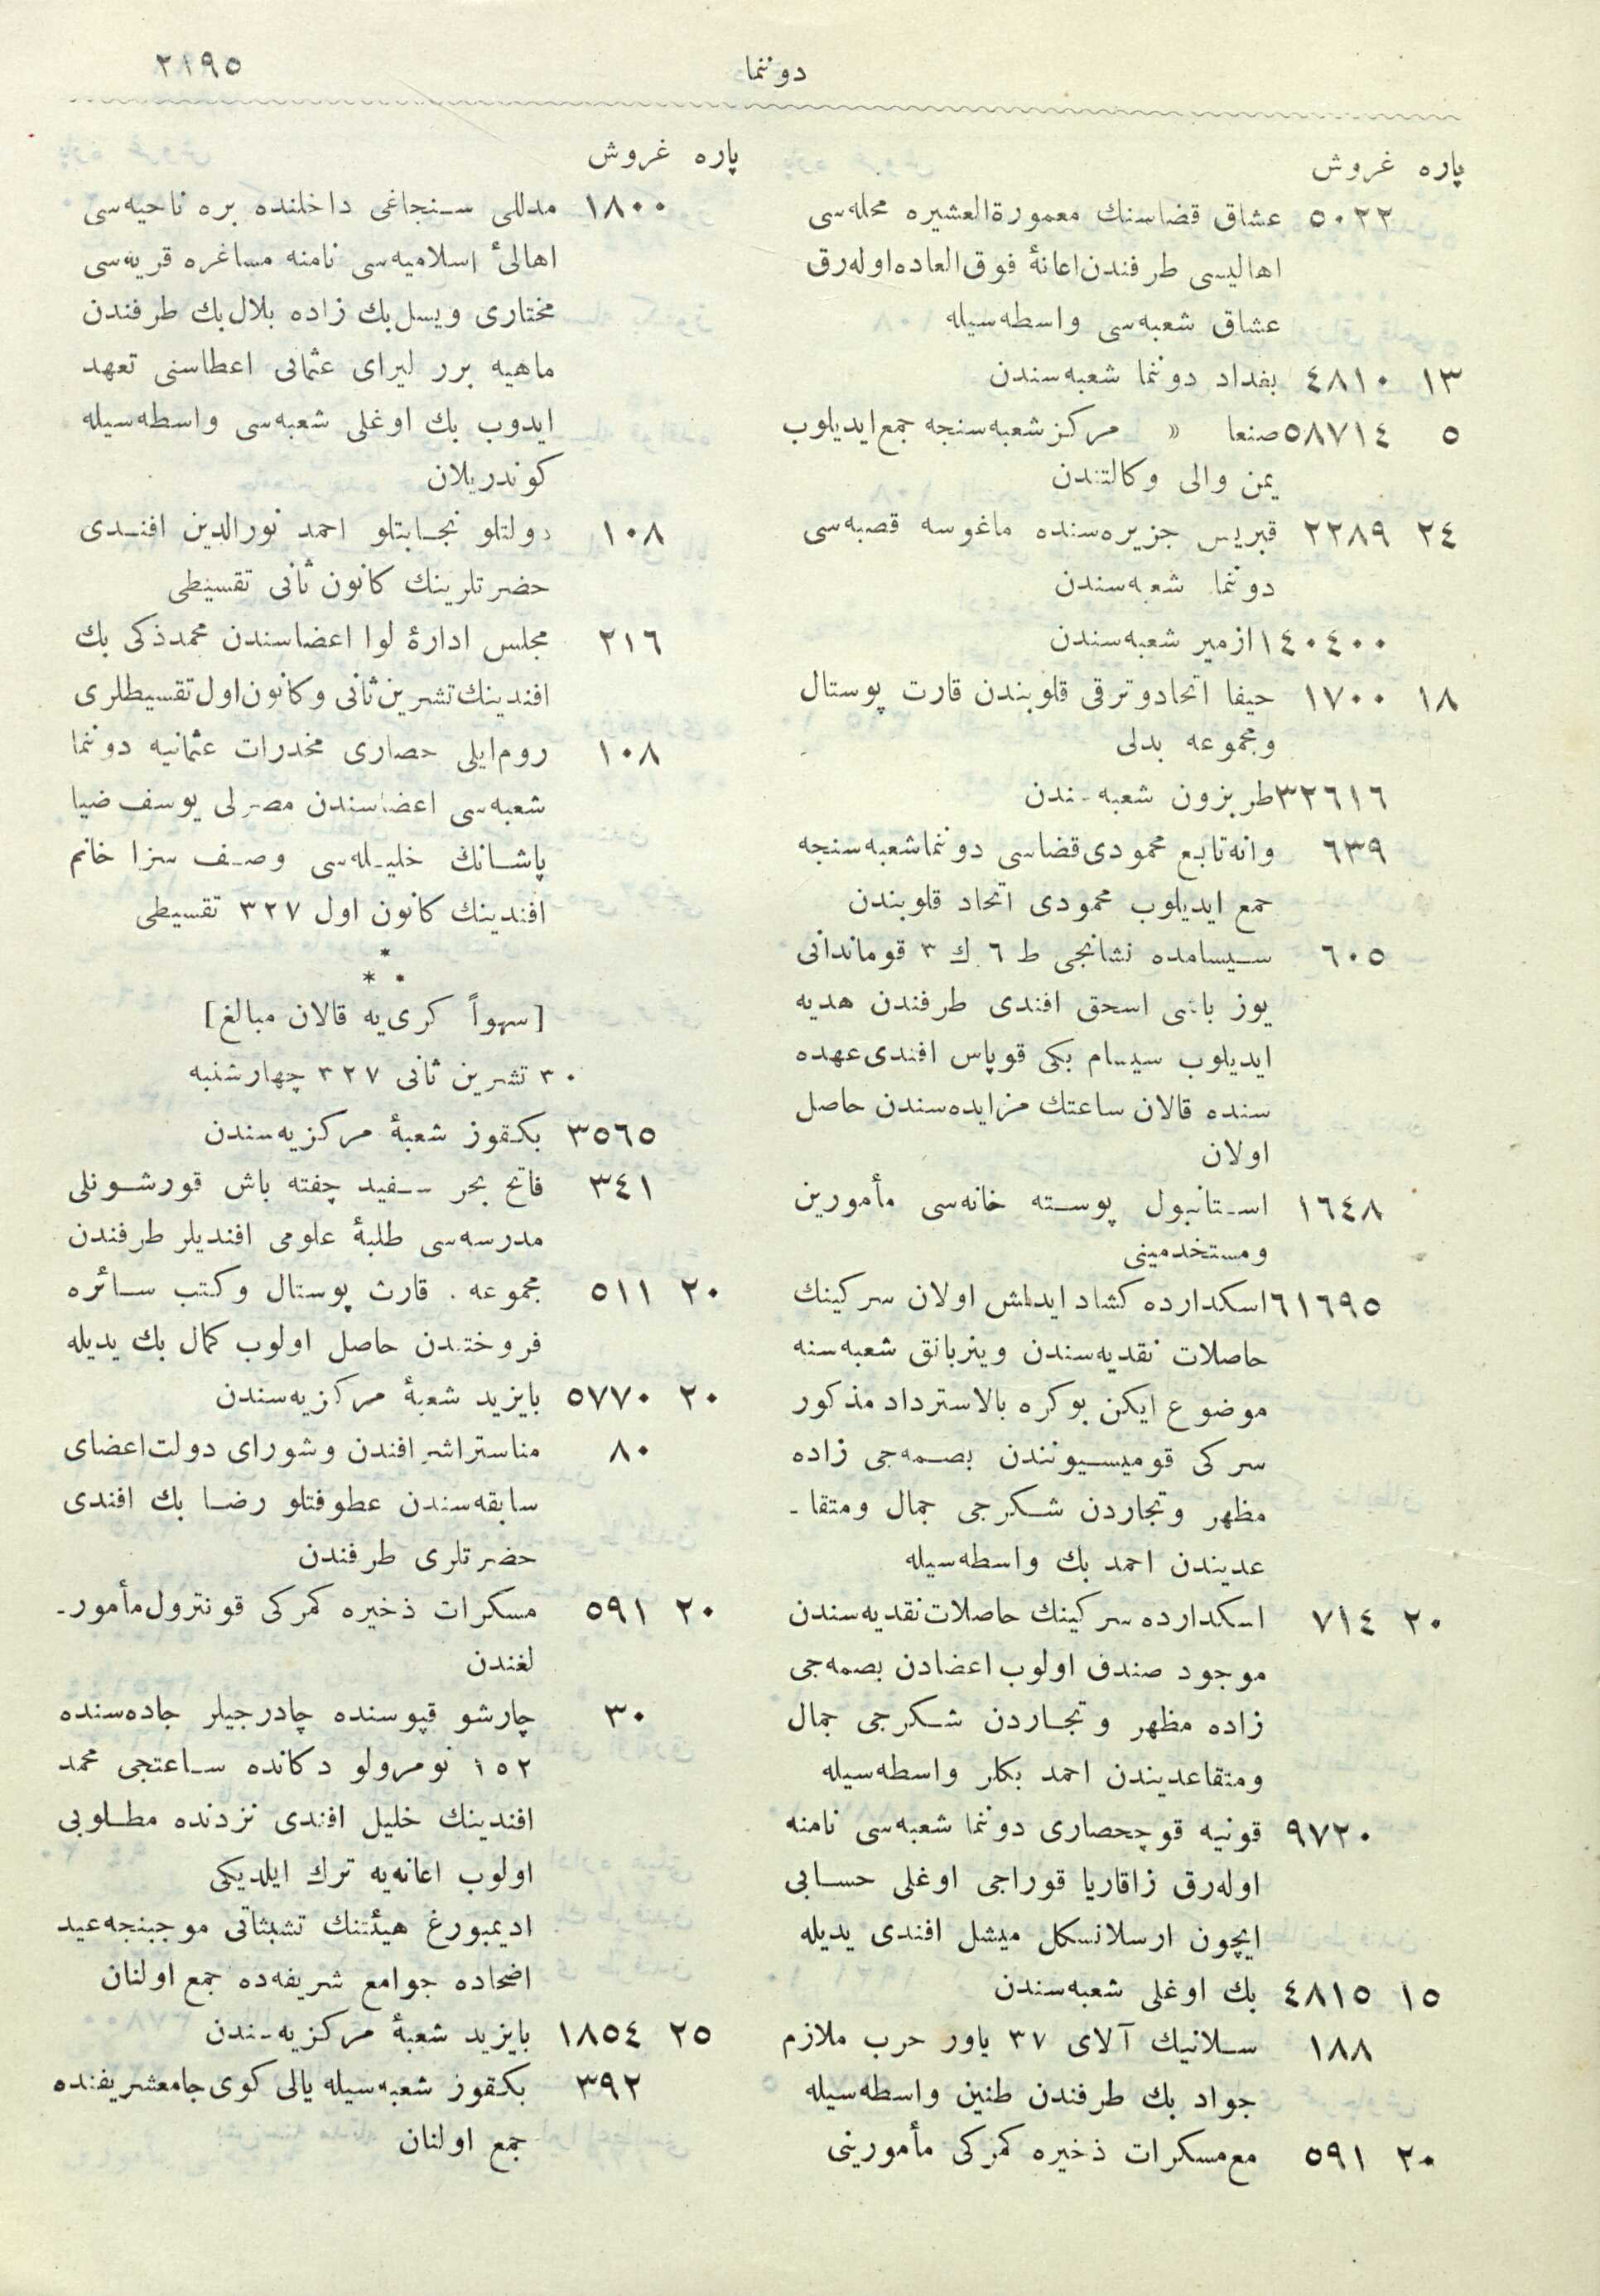 دوننما
٢١٩٥
پاره غروش
٥٠٢٢ عشاق قضاسنك معمورةالعشيره محله‌سی
اهاليسی طرفندن اعانهٔ فوق‌العاده اوله‌رق
عشاق شعبه‌سی واسطه‌سيله
١٣ ٤٨١٠ بغداد دوننما شعبه‌سندن
٥ ٥٨٧١٤ صنعا » مركز شعبه‌سنجه جمع ايديلوب
يمن والی وكالتندن
٢٤ ٢٢٨٩ قبريس جزيره‌سنده ماغوسه قصبه‌سی
دوننما شعبه‌سندن
١٤٠٤٠٠ ازمير شعبه‌سندن
١٨ ١٧٠٠ حيفا اتحاد وترقی قلوبندن قارت پوستال
ومجموعه بدلی
٣٢٦١٦ طربزون شعبه‌سندن
٦٣٩ وانه تابع محمودی قضاسی دوننما شعبه‌سنجه
جمع ايديلوب محمودی اتحاد قلوبندن
٦٠٥ سيسامده نشانجی ط ٦ ك ٣ قوماندانی
يوز باشی اسحق افندی طرفندن هديه
ايديلوب سيسام بكی قوپاس افندی عهده
سنده قالان ساعتك مزايده‌سندن حاصل
اولان
١٦٤٨ استانبول پوسته خانه‌سی مأمورين
ومستخدمينی
٦١٦٩٥ اسكدارده كشاد ايدلمش اولان سركينك
حاصلات نقديه‌سندن وينربانق شعبه‌سنه
موضوع ايكن بوكره بالاسترداد مذكور
سركی قوميسيونندن بصمه‌جی زاده
مظهر وتجاردن شكرجی جمال ومتقا ـ
عديندن احمد بك واسطه‌سيله
٢٠ ٧١٤ اسكدارده سركينك حاصلات نقديه‌سندن
موجود صندق اولوب اعضادن بصمه‌جی
زاده مظهر وتجاردن شكرجی جمال
ومتقاعديندن احمد بكلر واسطه‌سيله
٩٧٢٠ قونيه قوچحصاری دوننما شعبه‌سی نامنه
اوله‌رق زاقاريا قوراجی اوغلی حسابی
ايچون ارسلانسكل ميشل افندی يديله
١٥ ٤٨١٥ بك اوغلی شعبه‌سندن
١٨٨ سلانيك آلای ٣٧ ياور حرب ملازم
جواد بك طرفندن طنين واسطه‌سيله
٢٠ ٥٩١ مع مسكرات ذخيره كمركی مأمورينی
پاره غروش
١٨٠٠ مدللی سنجاغی داخلنده بره ناحيه‌سی
اهالیٔ اسلاميه‌سی نامنه مساغره قريه‌سی
مختاری ويسل بك زاده بلال بك طرفندن
ماهيه برر ليرای عثمانی اعطاسنی تعهد
ايدوب بك اوغلی شعبه‌سی واسطه‌سيله
كوندريلان
١٠٨ دولتلو نجابتلو احمد نورالدين افندی
حضرتلرينك كانون ثانی تقسيطی
٢١٦ مجلس ادارهٔ لوا اعضاسندن محمد ذكی بك
افندينك تشرين ثانی وكانون اول تقسيطلری
١٠٨ روم ايلی حصاری مخدرات عثمانيه دوننما
شعبه‌سی اعضاسندن مصرلی يوسف ضيا
پاشانك خليله‌سی وصف سزا خانم
افندينك كانون اول ٣٢٧ تقسيطی
*
* *
[سهواً كری‌يه قالان مبالغ]
٣٠ تشرين ثانی ٣٢٧ چهارشنبه
٣٥٦٥ بكقوز شعبهٔ مركزيه‌سندن
٣٤١ فاتح بحر سفيد چفته باش قورشونلی
مدرسه‌سی طلبهٔ علومی افنديلر طرفندن
٢٠ ٥١١ مجموعه . قارت پوستال وكتب سائره
فروختندن حاصل اولوب كمال بك يديله
٢٠ ٥٧٧٠ بايزيد شعبهٔ مركزيه‌سندن
٨٠ مناستر اشرافندن وشورای دولت اعضای
سابقه‌سندن عطوفتلو رضا بك افندی
حضرتلری طرفندن
٢٠ ٥٩١ مسكرات ذخيره كمركی قونترول مأمور ـ
لغندن
٣٠ چارشو قپوسنده چادرجيلر جاده‌سنده
١٥٢ نومرولو دكانده ساعتجی محمد
افندينك خليل افندی نزدنده مطلوبی
اولوب اعانه‌يه ترك ايلديكی
اديمبورغ هيئتنك تشبثاتی موجبنجه عيد
اضحاده جوامع شريفه‌ده جمع اولنان
٢٥ ١٨٥٤ بايزيد شعبهٔ مركزيه‌سندن
٣٩٢ بكقوز شعبه‌سيله يالی كوی جامعشريفنده
جمع اولنان